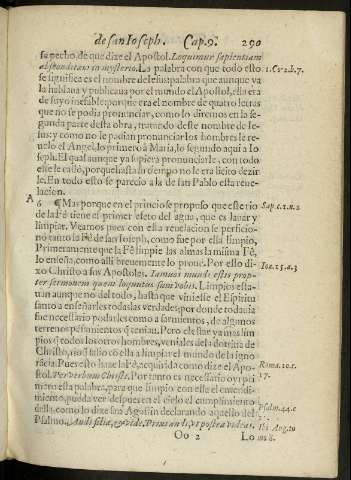 de san Ioseph. Cap.9. 290
su pecho, de que dize el Apostol. Loquimur sapientiam
absconditam in mysterio. La palabra con que todo esto
1.Cor.2.b.7.
se significa es el nombre de Iesus: palabra que aunque ya
la hablaua y publicaua por el mundo el Apostol, ella era
de suyo inefable: porque era el nombre de quatro letras
que no se podia pronunciar, como lo diremos en la se-
gunda parte desta obra, tratando deste nombre de Ie-
sus: y como no le podian pronunciar los hombres le re-
uelo el Angel, lo primero a Maria, lo segundo aqui a Io
seph. El qual aunque ya supiera pronunciarle, con todo
esse le callò, porque hasta su tiempo no le era licito dezir
le. En todo esto se parecio a la de san Pablo esta reue-
lacion.
A
6 ¶ Mas porque en el principio se propuso que este rio
Sap.c.1.n.2
de la Fè tiene el primer efeto del agua, que es lauar y
limpiar. Veamos pues con ella reuelacion se perficio-
nó tanto la Fè de san Ioseph, como fue por ella limpio.
Primeramente que la Fè limpie las almas la misma Fè,
lo enseña, como alli breuemente lo prouè. Por ello di-
Ioa.15.a.3
xo Christo a sus Apostoles. Iam uos mundi estis prop-
ter sermonem quem loquutus sum vobis. Limpios esta-
uan aunque no del todo, hasta que viniesse el Espiritu
santo a enseñarles todas las verdades: por donde todauia
fue necessario podarles como a sarmientos, de algunos
terrenos pensamientos q̃ tenian. Pero ellos e ya mas lim
pios q̃ todos los otros hombres, veniales de la dotrina de
Christo, no q̃ salio de ella a limpiar el mundo de la igno
rácia. Pues esto haze la Fè, adquirida como dize el Apos-
Roma.10.c.
17.
tol. Per verbum Christi. Por tanto es necessario oyr pri
mero esta palabra, para que limpio con esse el entendi-
miento, pueda ver despues en el cielo el cumplimiento
della, como lo dize san Agustin declarando aquello del
Psalm.44.c
Psalmo. Audi filia, & vide. Prius audi, vt postea videas.
Ibi Aug.to
Oo 2 Lo
m 8.